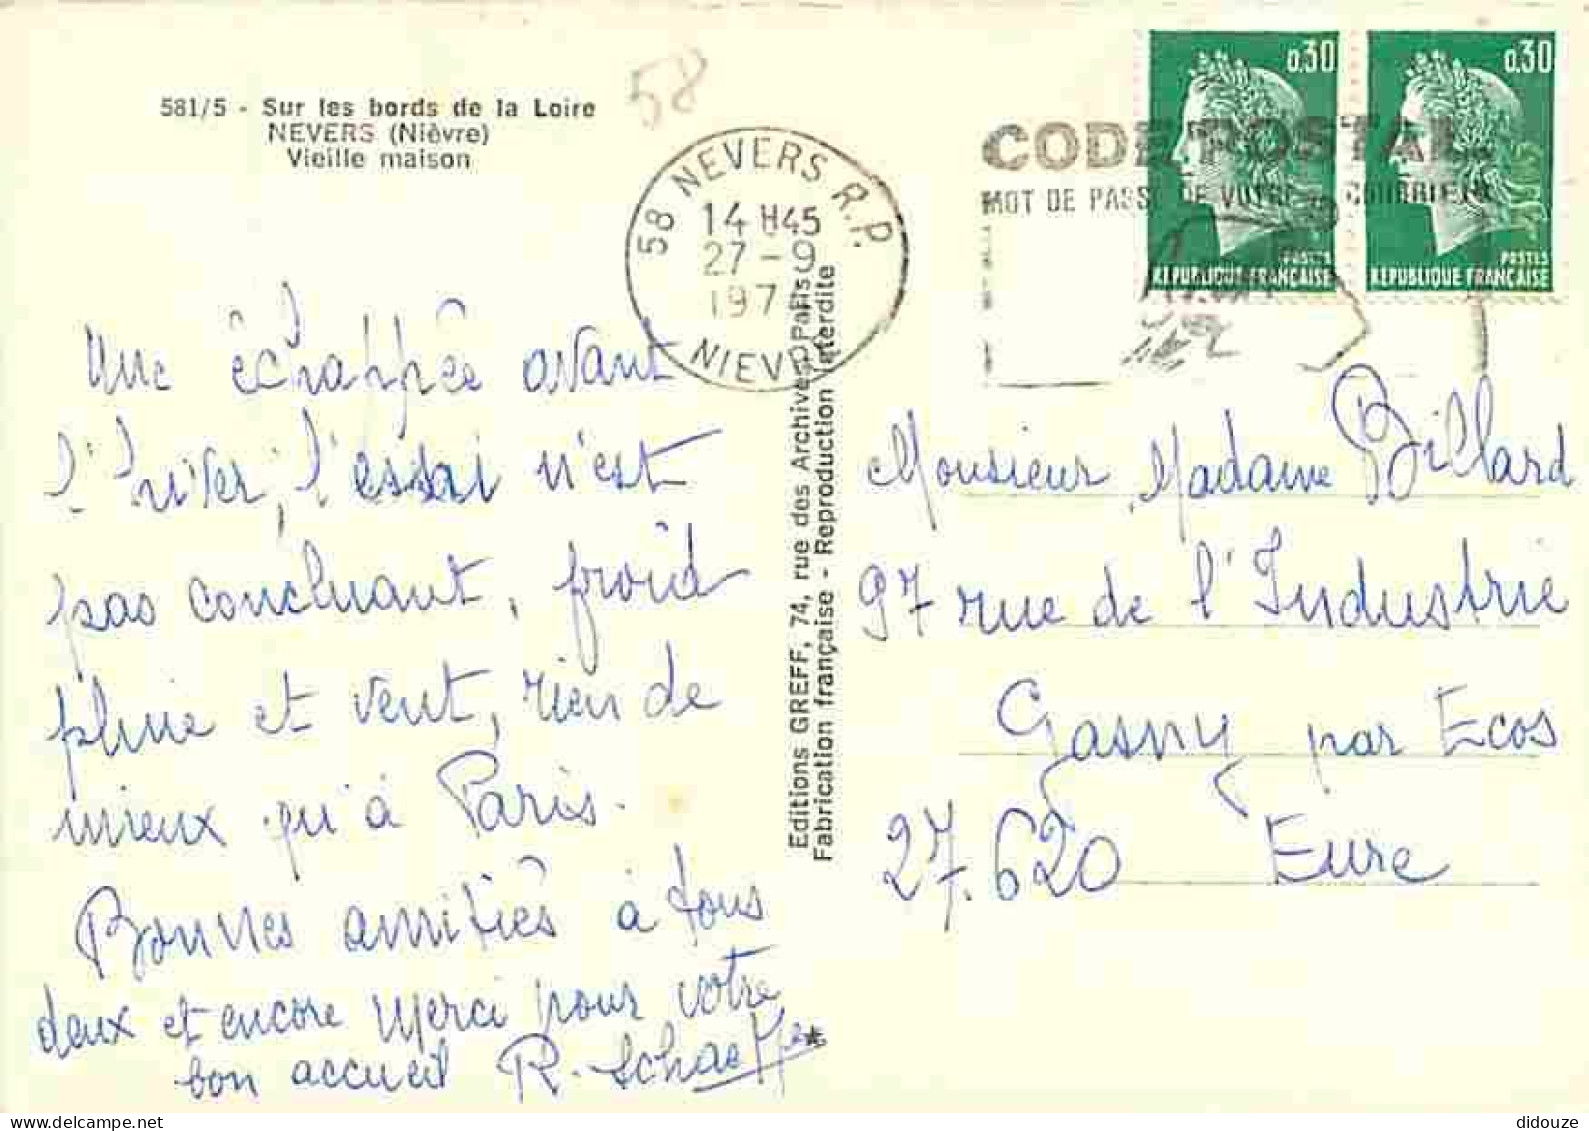 581/5 - Sur les bords de la Loire
NEVERS (Nièvre)
Vieille maison
58
58 NEVERS R.P.
14 H45
27 - 9
197
NIEVRE
CODE POSTAL
MOT DE PASSE DE VOTRE COURRIER
0,30
POSTES
REPUBLIQUE FRANÇAISE
0,30
POSTES
REPUBLIQUE FRANÇAISE
Une échappée avant
l'hiver, l'essai n'est
pas concluant, froid
pluie et vent, rien de
mieux qu'à Paris.
Bonnes amitiés à tous
deux et encore merci pour votre
bon accueil R. Schaeffer
Editions GREFF, 74, rue des Archives, Paris
Fabrication française - Reproduction interdite
Monsieur Madame Billard
97 rue de l'Industrie
Gasny par Ecos
27.620 Eure
didouze